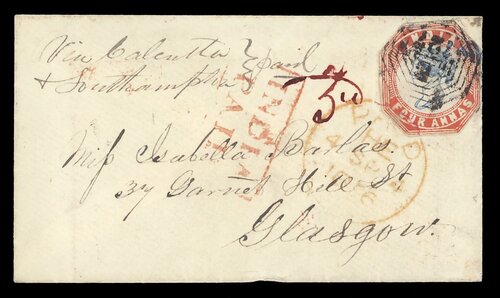 Via Calcutta & paid
& Southampton
INDIA
PAID
3d
INDIA
FOUR ANNAS
Miss Isabella Barlas
37 Garnet Hill St
Glasgow.